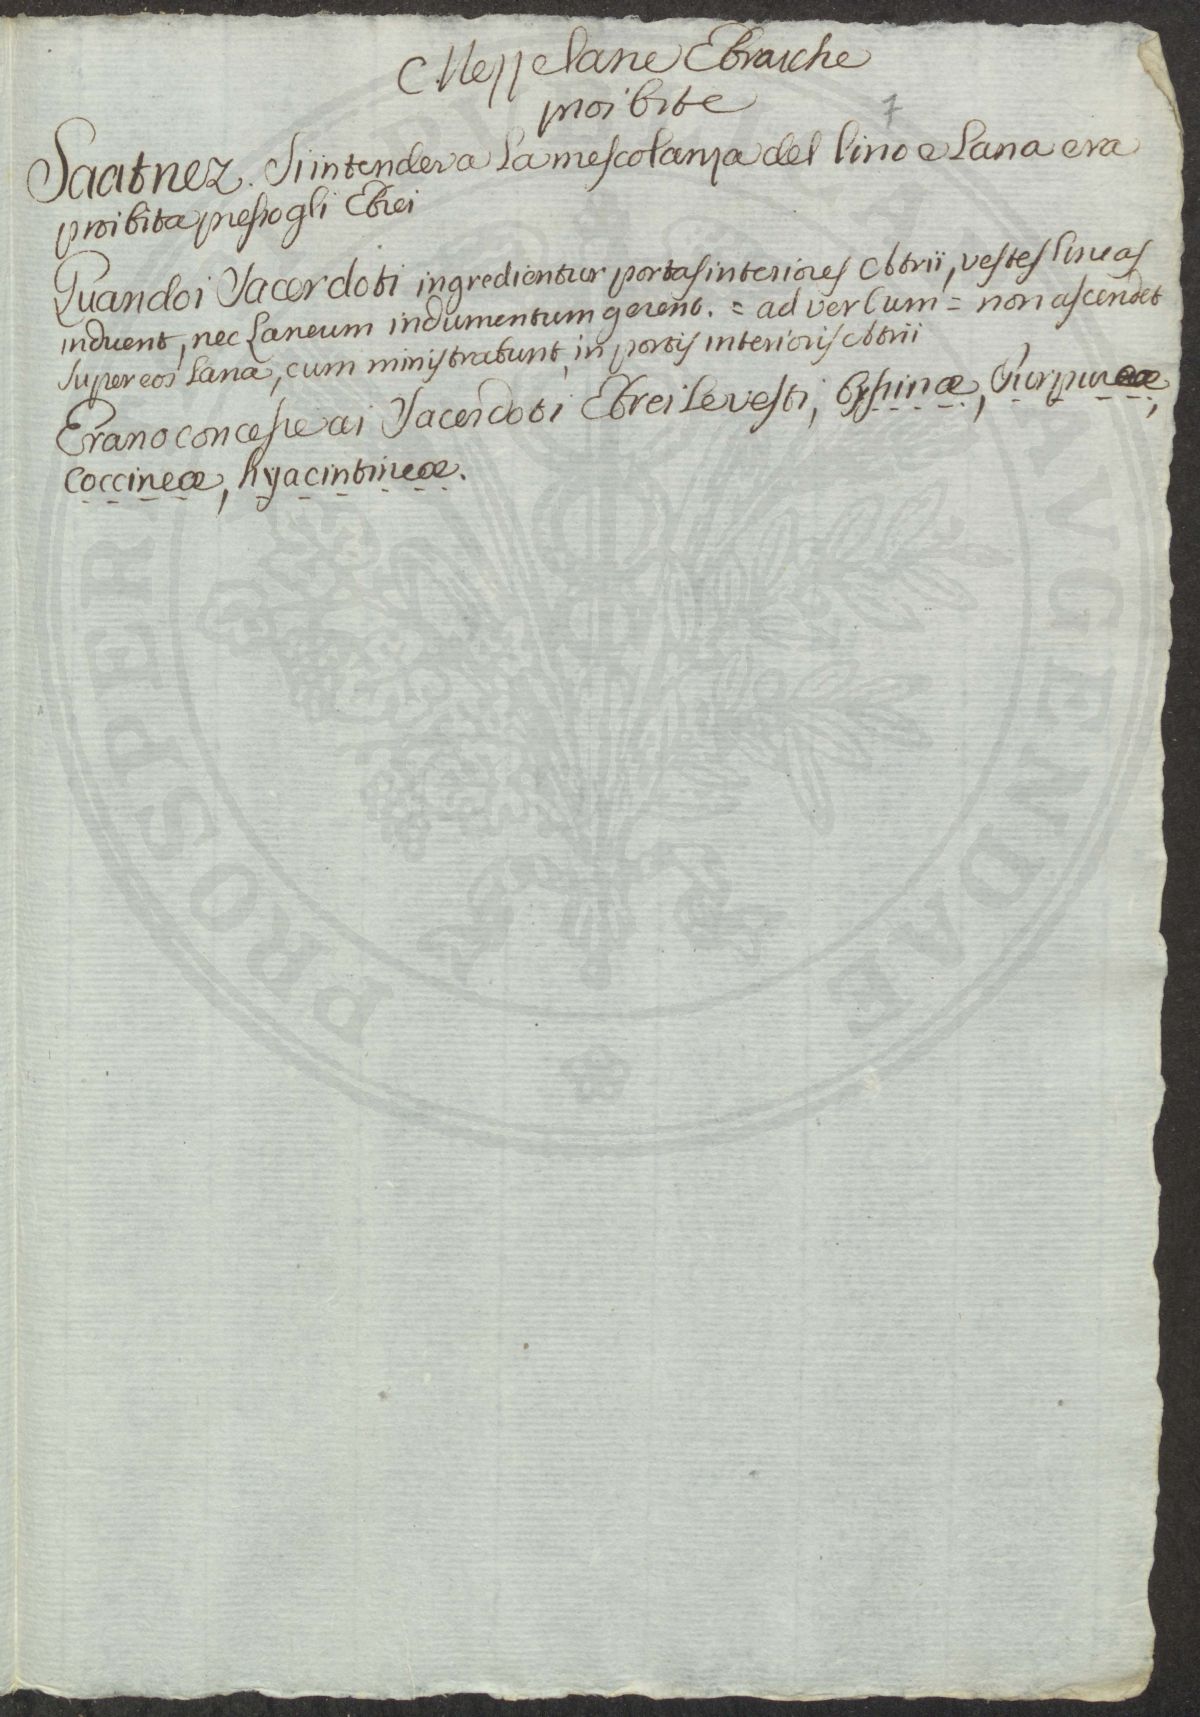 Mezzelane Ebraiche
proibite
7
Saatnez. Si intendeva La mescolanza del lino e Lana era
proibita presso gli Ebrei
Quando i Sacerdoti ingredientur portas interiores Atrii, vestes lineas
induent, nec Laneum indumentum gerent. = ad verbum = non ascendet
super eos Lana, cum ministrabunt in portis interioris Atrii
Erano concesse ai Sacerdoti Ebrei Le vesti, byssinæ, Purpureæ,
coccineæ, hyacintineæ.
PROSPER AVGENDAE